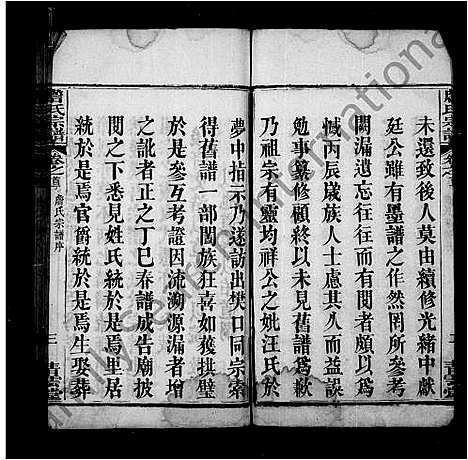 未還致後人莫由續修光緒中獻
廷公雖有墨譜之作然罔所參考
闕漏遺忘往往而有閱者頗以爲
憾丙辰歲族人士慮其久而益誤
勉事纂修顧終以未見舊譜爲歉
乃祖宗有靈均祥公之妣汪氏於
夢中指示乃遂訪出樊口同宗索
得舊譜一部闔族狂喜如獲拱璧
於是參互考證因流溯源漏者增
之訛者正之丁巳春譜成告廟披
閱之下悉見姓氏統於是焉里居
統於是焉官爵統於是焉生娶葬
詹氏宗譜
卷之首
詹氏宗譜序
三
青雲堂